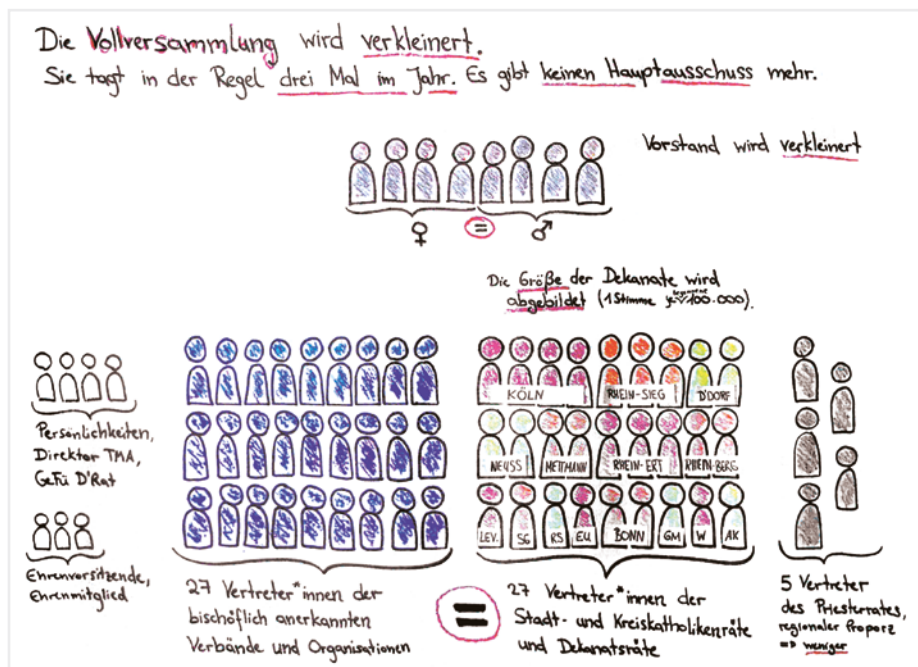 Die Vollversammlung wird verkleinert.
Sie tagt in der Regel drei Mal im Jahr. Es gibt keinen Hauptausschuss mehr.
Vorstand wird verkleinert
♀ = ♂
Die Größe der Dekanate wird
abgebildet (1 Stimme je 100.000).
KÖLN RHEIN-SIEG D'DORF
NEUSS METTMANN RHEIN-ERFT RHEIN-BERG
LEV. SG RS EU BONN GM W AK
Persönlichkeiten,
Direktor TMA,
GeFü D'Rat
Ehrenvorsitzende,
Ehrenmitglied
27 Vertreter*innen der
bischöflich anerkannten
Verbände und Organisationen
=
27 Vertreter*innen der
Stadt- und Kreiskatholikenräte
und Dekanatsräte
5 Vertreter
des Priesterrates,
regionaler Proporz
⇒ weniger